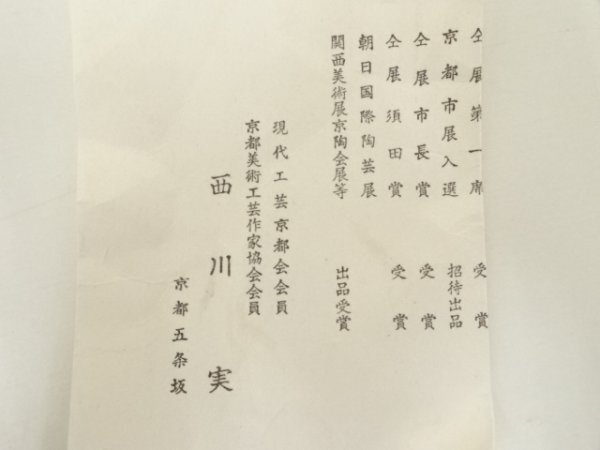 仝展第一席 受賞
京都市展入選 招待出品
仝展市長賞 受賞
仝展須田賞 受賞
朝日国際陶芸展
関西美術展京陶会展等 出品受賞
現代工芸京都会会員
京都美術工芸作家協会会員
西川実
京都五条坂